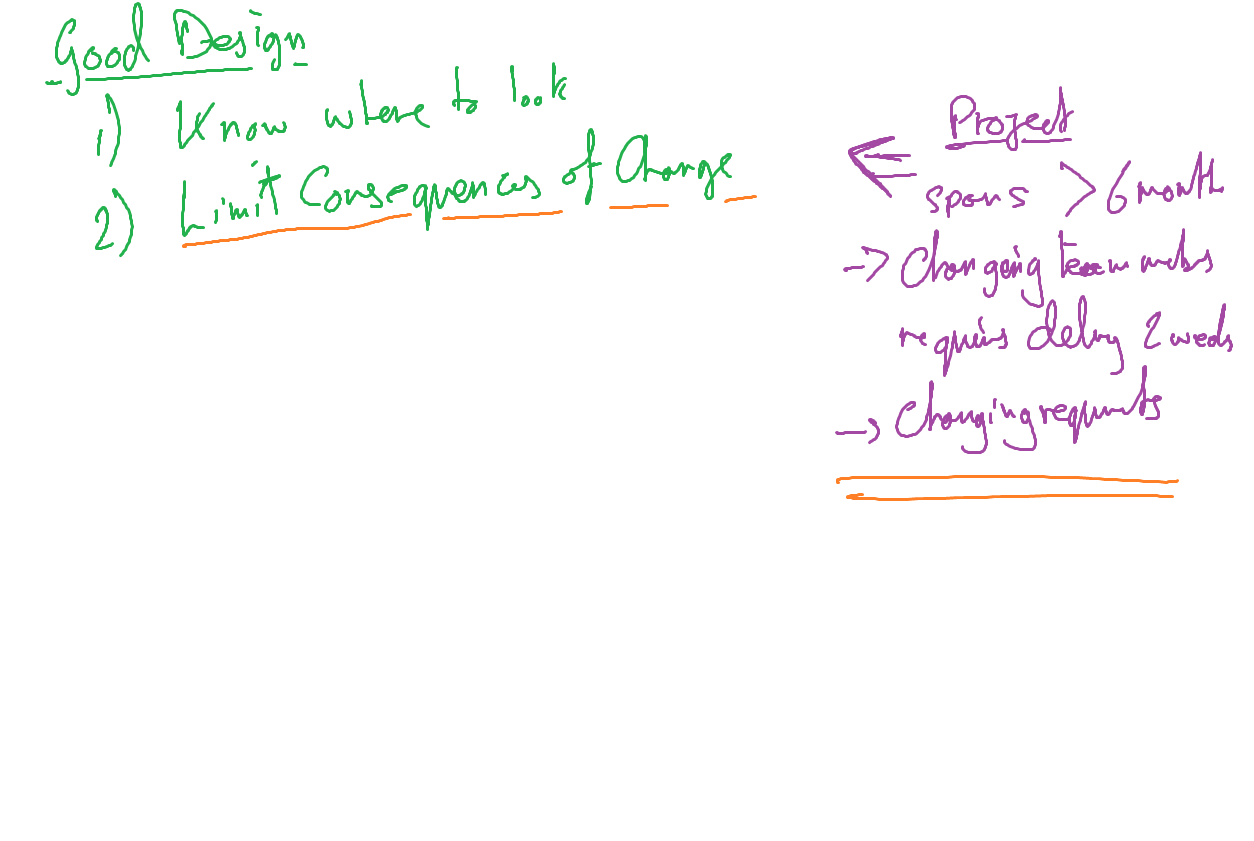 Good Design
1) Know where to look
2) Limit Consequences of Change
Project
spans > 6 month
-> Changing team
requires delay 2 weeks
-> Changing